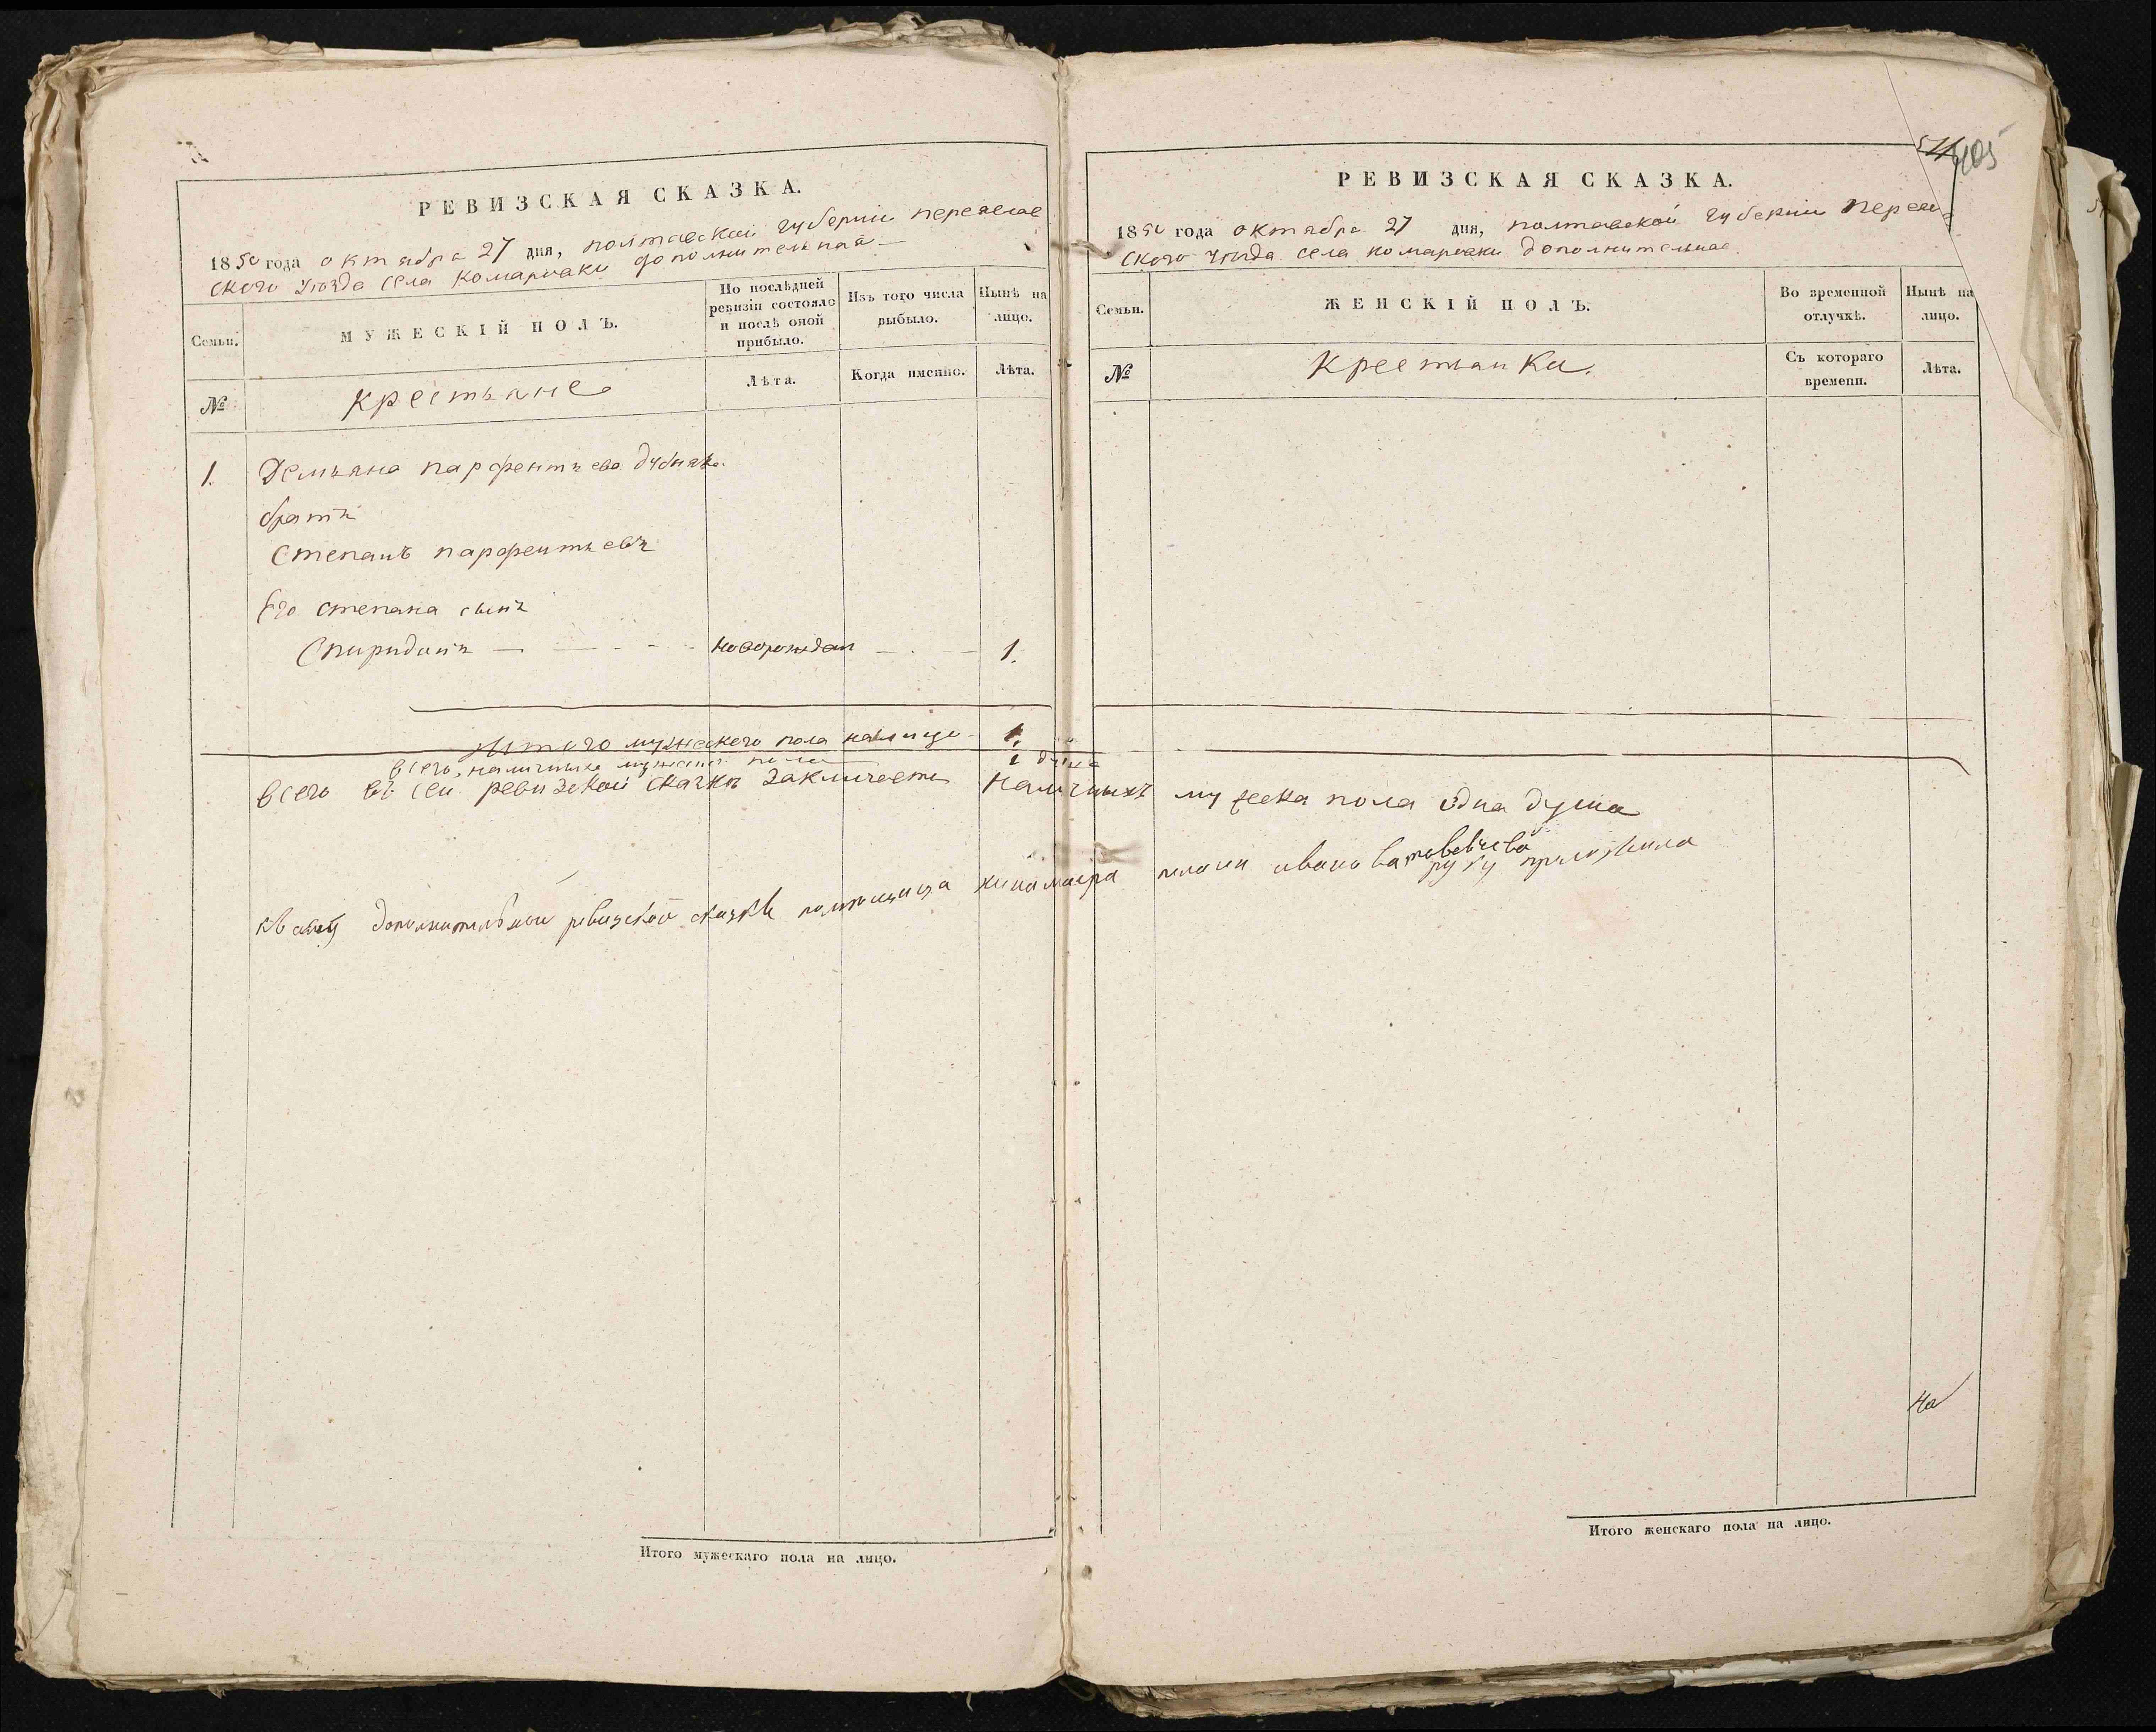 РЕВИЗСКАЯ СКАЗКА.
1850 года октября 27 дня, полтавской губернии переяслав
ского уезда села Комаровки дополнительная
Семьи.
МУЖЕСКІЙ ПОЛЪ.
По послѣдней ревизіи состояло и послѣ оной прибыло.
Изъ того числа выбыло.
Нынѣ на лицо.
№
крестьяне
Лѣта.
Когда именно.
Лѣта.
1. Демьяна парфентьева
братъ
Степанъ парфентьевъ
Его степана сынъ
Спиридонъ новорожден 1.
Итого мужеского пола налицо 1.
всего наличныхъ мужеска пола 1 душа
всего въ сей ревизской сказкѣ заключается наличныхъ мужеска пола одна душа
къ сей дополнительной ревизской сказкѣ помещица иванова руку приложила
Итого мужескаго пола на лицо.
405
РЕВИЗСКАЯ СКАЗКА.
1850 года октября 27 дня, полтавской губернии переяс
ского уезда села комаровки дополнительная
Семьи.
ЖЕНСКІЙ ПОЛЪ.
Во временной отлучкѣ.
Нынѣ на лицо.
№
Крестьянки.
Съ котораго времени.
Лѣта.
На
Итого женскаго пола на лицо.